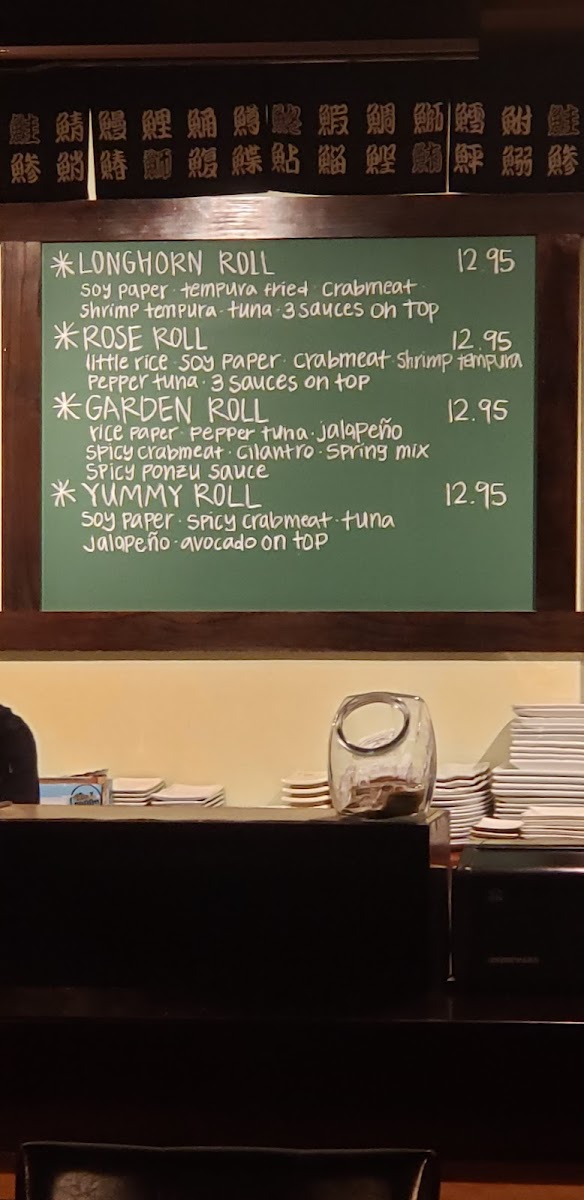 鮭 鯖 鰻 鯉 鯒 鱒 鮑 鰕 鯛 鰤 鱈 鮒 鮭
鯵 鮹 鰆 鰤 鰒 鰈 鮎 鯔 鰹 鮪 鮃 鰯 鯵
*LONGHORN ROLL 12.95
soy paper · tempura fried · crabmeat ·
shrimp tempura · tuna · 3 sauces on top
*ROSE ROLL 12.95
little rice · soy paper · crabmeat · shrimp tempura
pepper tuna · 3 sauces on top
*GARDEN ROLL 12.95
rice paper · pepper tuna · jalapeño
spicy crabmeat · cilantro · spring mix
spicy ponzu sauce
*YUMMY ROLL 12.95
soy paper · spicy crabmeat · tuna
jalapeño · avocado on top